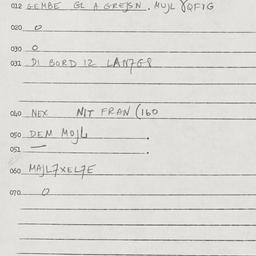 012 GEMBE GL A GREJSN. MUJL 8QF7G
020 0
030 0
031 DI BORD 12 LAN7G8
040 NEX NIT FRAN (160
050 DEM MOJL .
051 — .
060 MAJL7XEL7E
070 0